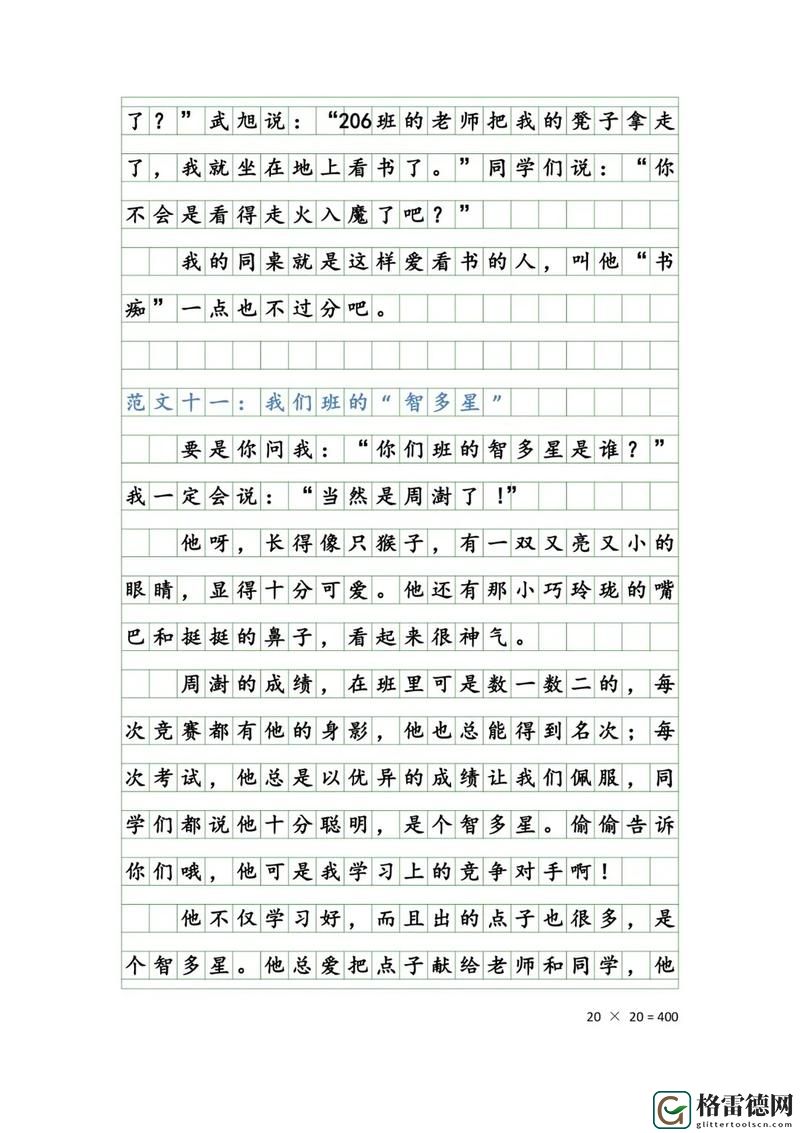 了？”武旭说：“206班的老师把我的凳子拿走
了，我就坐在地上看书了。”同学们说：“你
不会是看得走火入魔了吧？”
我的同桌就是这样爱看书的人，叫他“书
痴”一点也不过分吧。
范文十一：我们班的“智多星”
要是你问我：“你们班的智多星是谁？”
我一定会说：“当然是周澍了！”
他呀，长得像只猴子，有一双又亮又小的
眼睛，显得十分可爱。他还有那小巧玲珑的嘴
巴和挺挺的鼻子，看起来很神气。
周澍的成绩，在班里可是数一数二的，每
次竞赛都有他的身影，他也总能得到名次；每
次考试，他总是以优异的成绩让我们佩服，同
学们都说他十分聪明，是个智多星。偷偷告诉
你们哦，他可是我学习上的竞争对手啊！
他不仅学习好，而且出的点子也很多，是
个智多星。他总爱把点子献给老师和同学，他
20 × 20 = 400
格雷德网
glittertoolscn.com